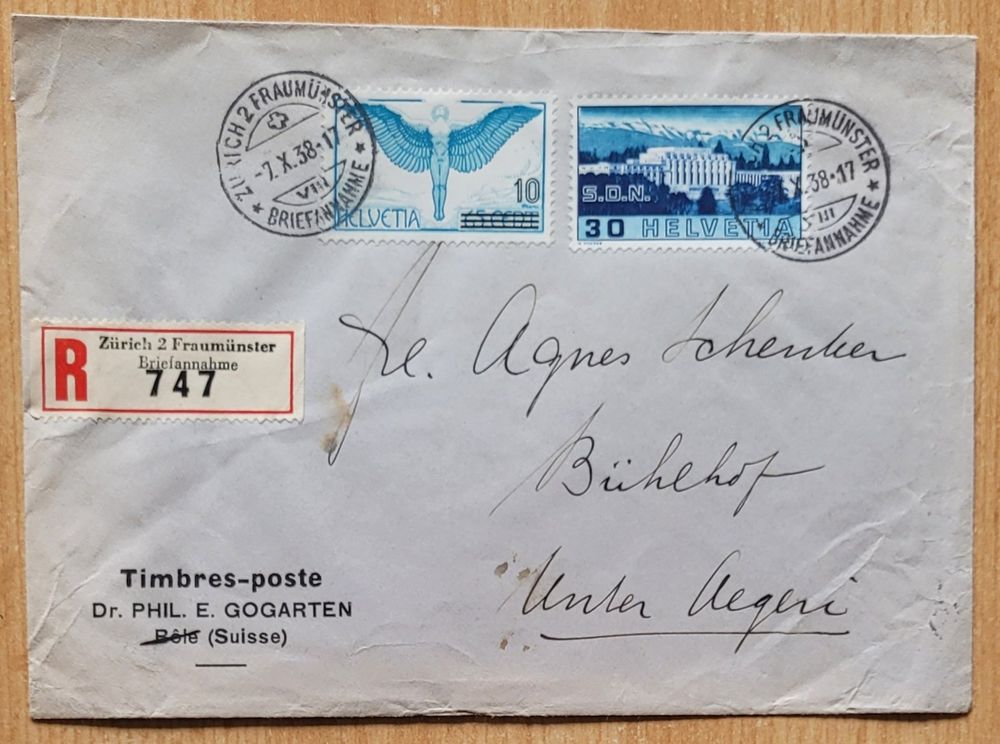 ZÜRICH 2 FRAUMÜNSTER
-7.X.38-17
VIII
* BRIEFANNAHME *
10
HELVETIA 65 CENT
S.D.N.
30 HELVETIA
2 FRAUMÜNSTER
X.38-17
VIII
BRIEFANNAHME *
R
Zürich 2 Fraumünster
Briefannahme
747
Agnes Schenker
Bühlhof
Unter Aegeri
Timbres-poste
Dr. PHIL. E. GOGARTEN
Bôle (Suisse)